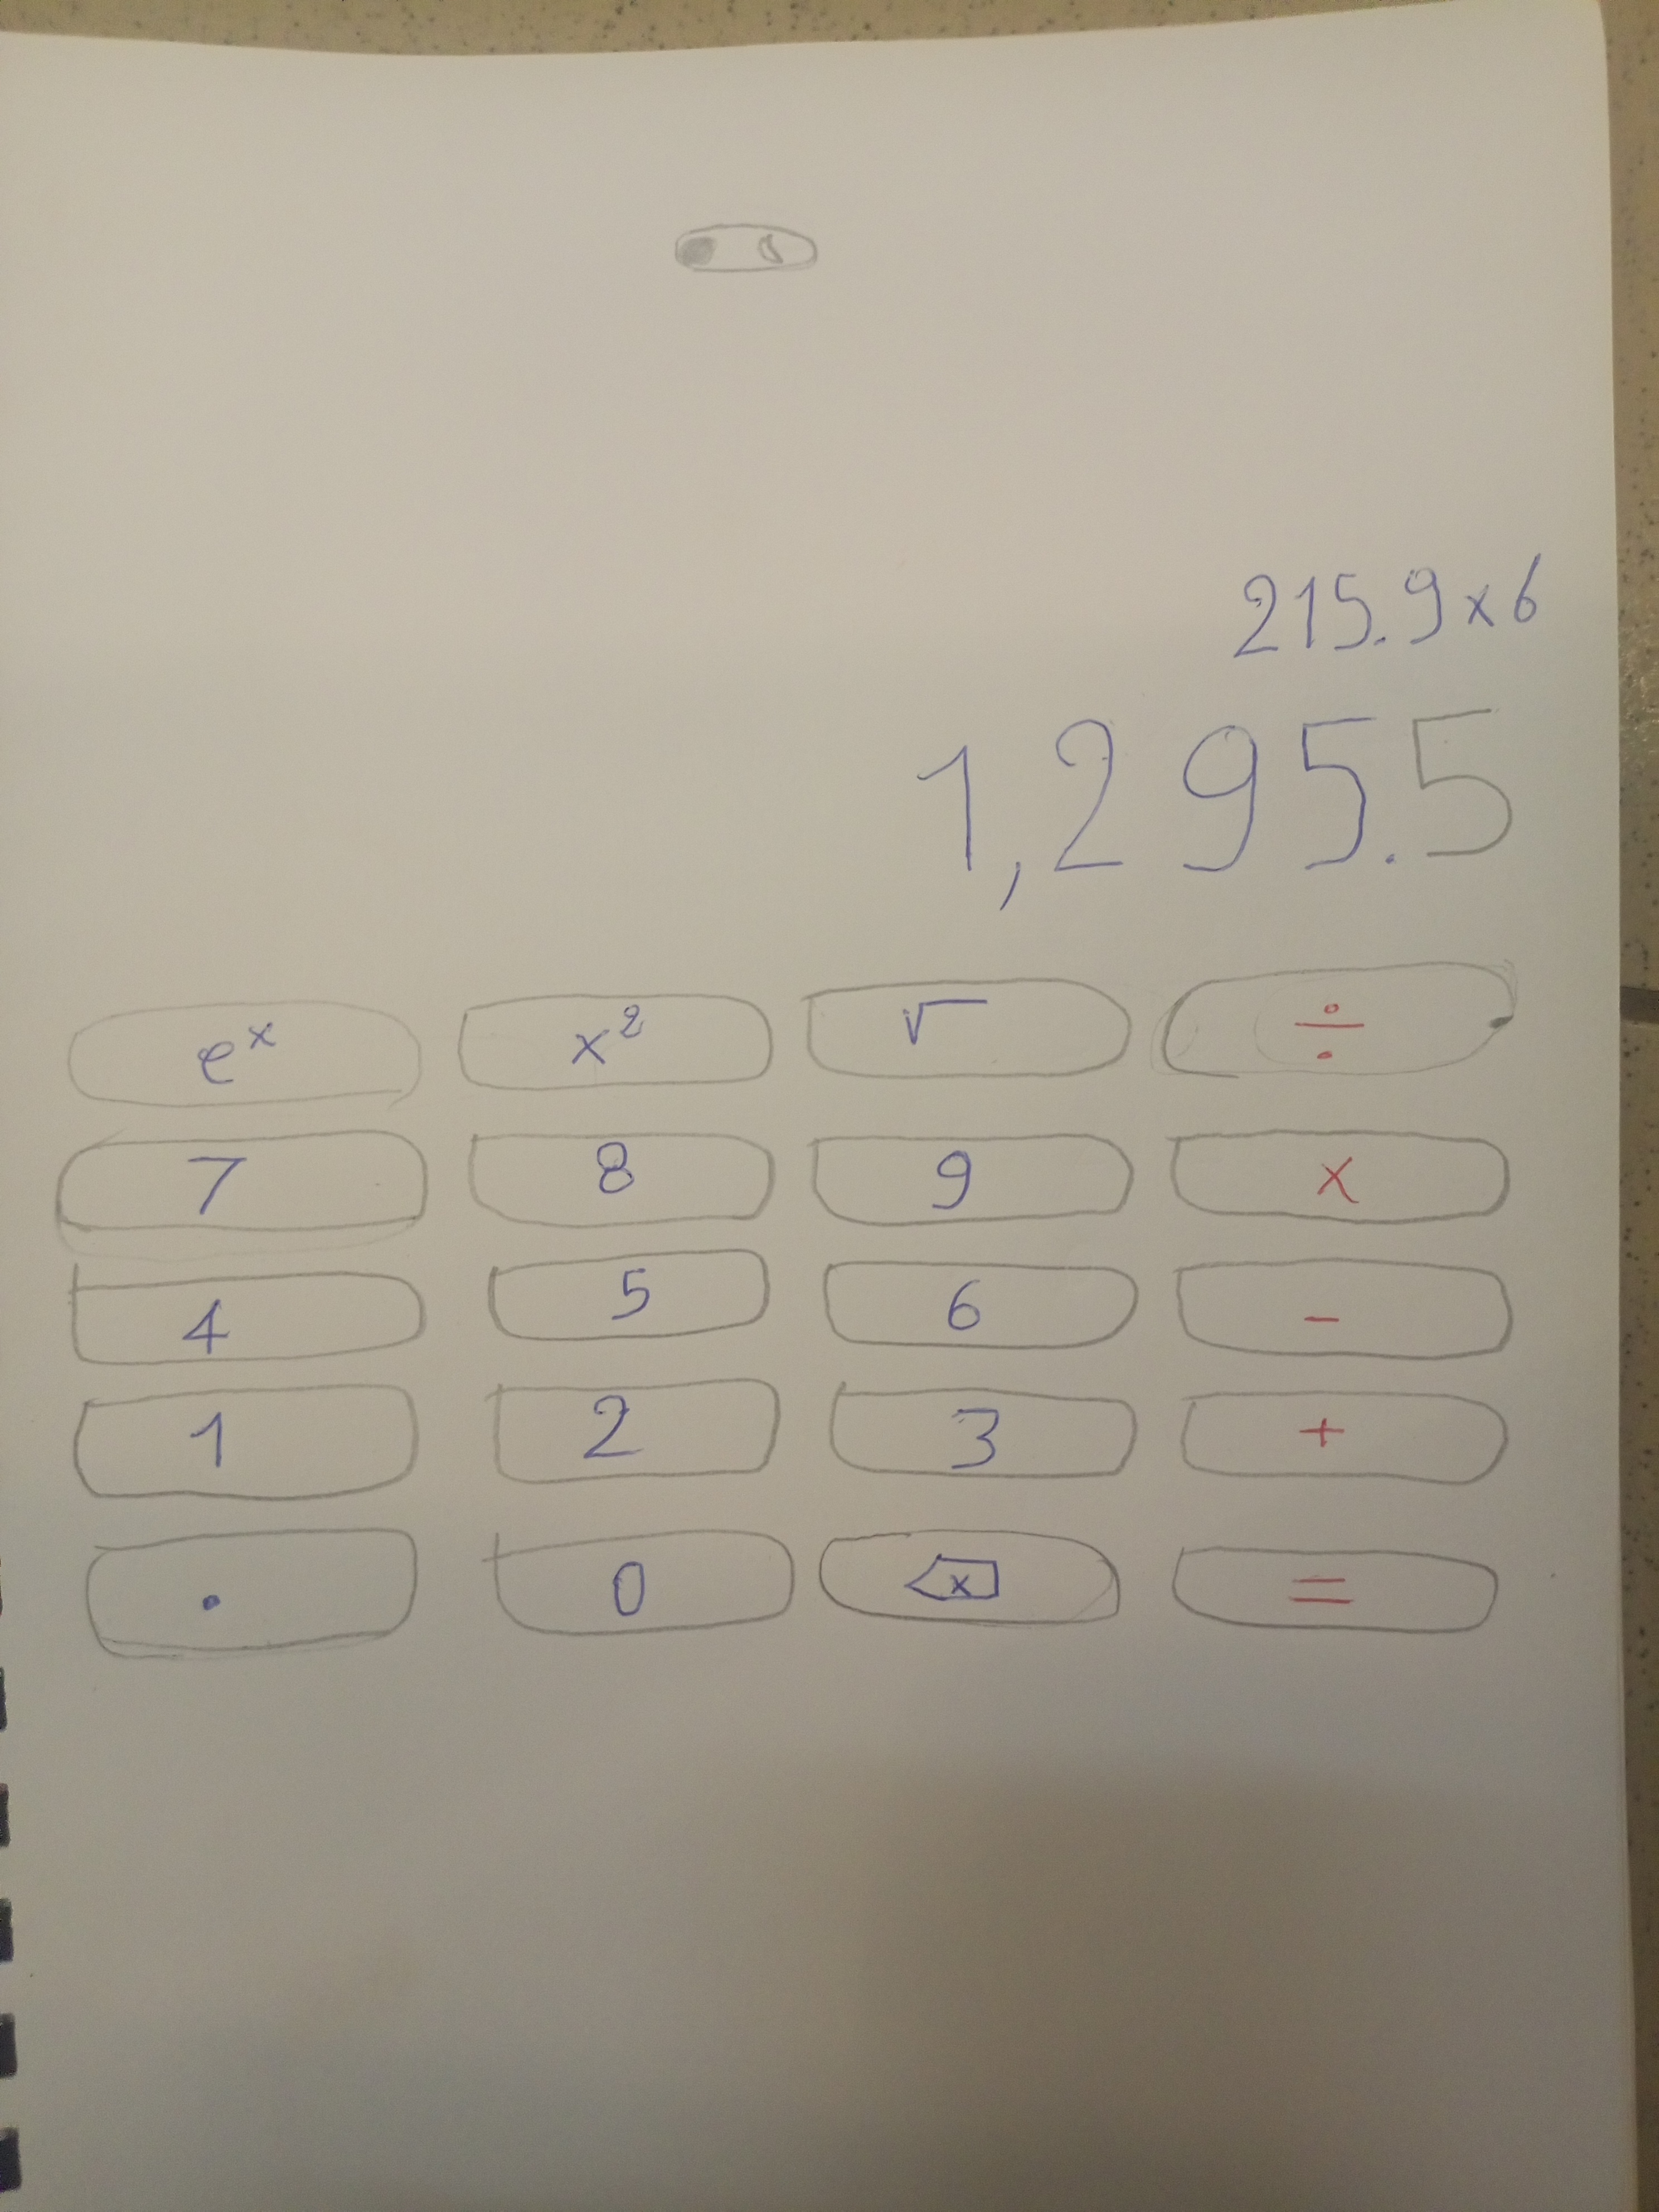 215.9x6
1,295.5
eˣ x² √ ÷
7 8 9 x
4 5 6 -
1 2 3 +
. 0 x =